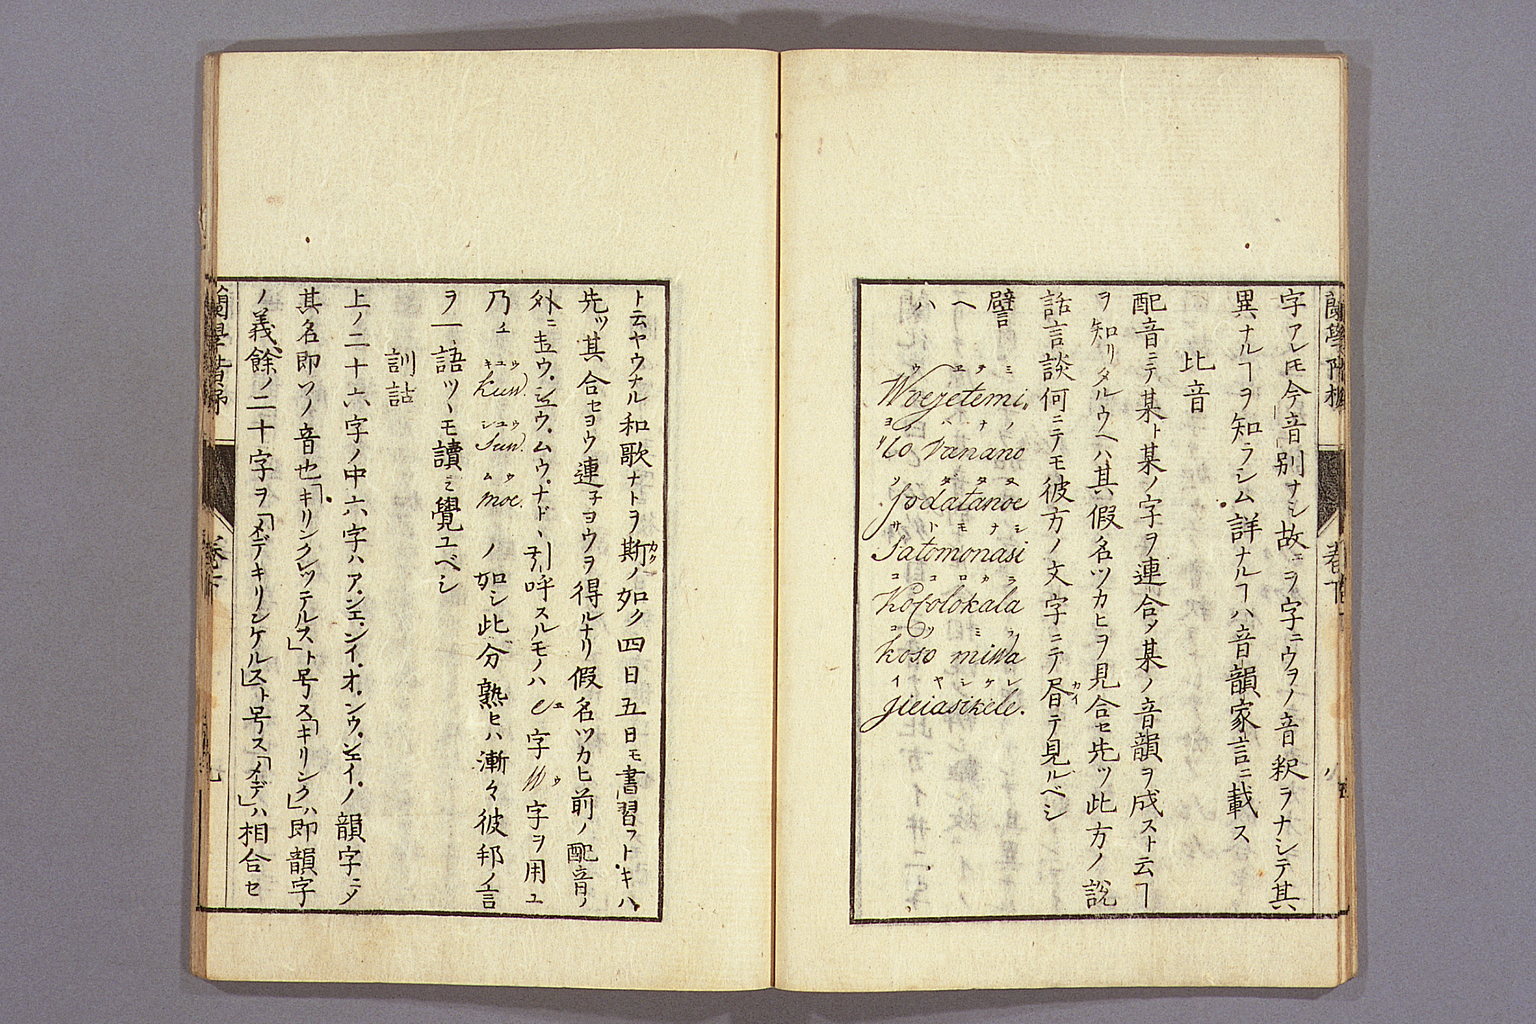 字アレ𪜈今音別ナシ故ニヲ字ニウヲノ音釈ヲナシテ其
異ナルヿヲ知ラシム詳ナルヿハ音韻家言ニ載ス
比音
配音ニテ某ト某ノ字ヲ連合タ某ノ音韻ヲ成スト云ヿ
ヲ知リタルウヘハ其假名ツカヒヲ見合セ先ツ此方ノ説
話言談何ニテモ彼方ノ文字ニテ㕧カイテ見ルベシ
譬
ヘ
ハ
ウユテミ
Woejetemi.
To vanano
ソダタヌ
fodatanoe
サトモナシ
Satomonasi
ココロカラ
Kokolokala
コソミワ
koso miwa
イヤシケレ
jieiasikele.
ト云ヤウナル和歌ナトヲ斯カクノ如ク四日五日モ書習フトキハ
先ツ其合セヨウ連子ヨウヲ得ルナリ假名ツカヒ前ノ配音ノ
外ニキウ、シュウ、ムウ、ナド、引呼スルモノハeユ字Wウ字ヲ用ユ
乃エ
キユウ
kuw.
シユウ
Suw.
ムウ
moe.
ノ如シ此分熟ヒハ漸々彼邦ノ言
ヲ一語ツヽモ讀ミ覺ユベシ
訓詁
上ノ二十六字ノ中六字ハア、ンエ、ンイ、オ、ンウ、ンエイ、ノ韻字ニメ
其名即ツノ音也「キリンクレッテルス」ト号ス「キリンク」ハ即韻字
ノ義餘ノ二十字ヲ「メデキリンケルス」ト号ス「メデ」ハ相合セ
蘭學階梯
卷下